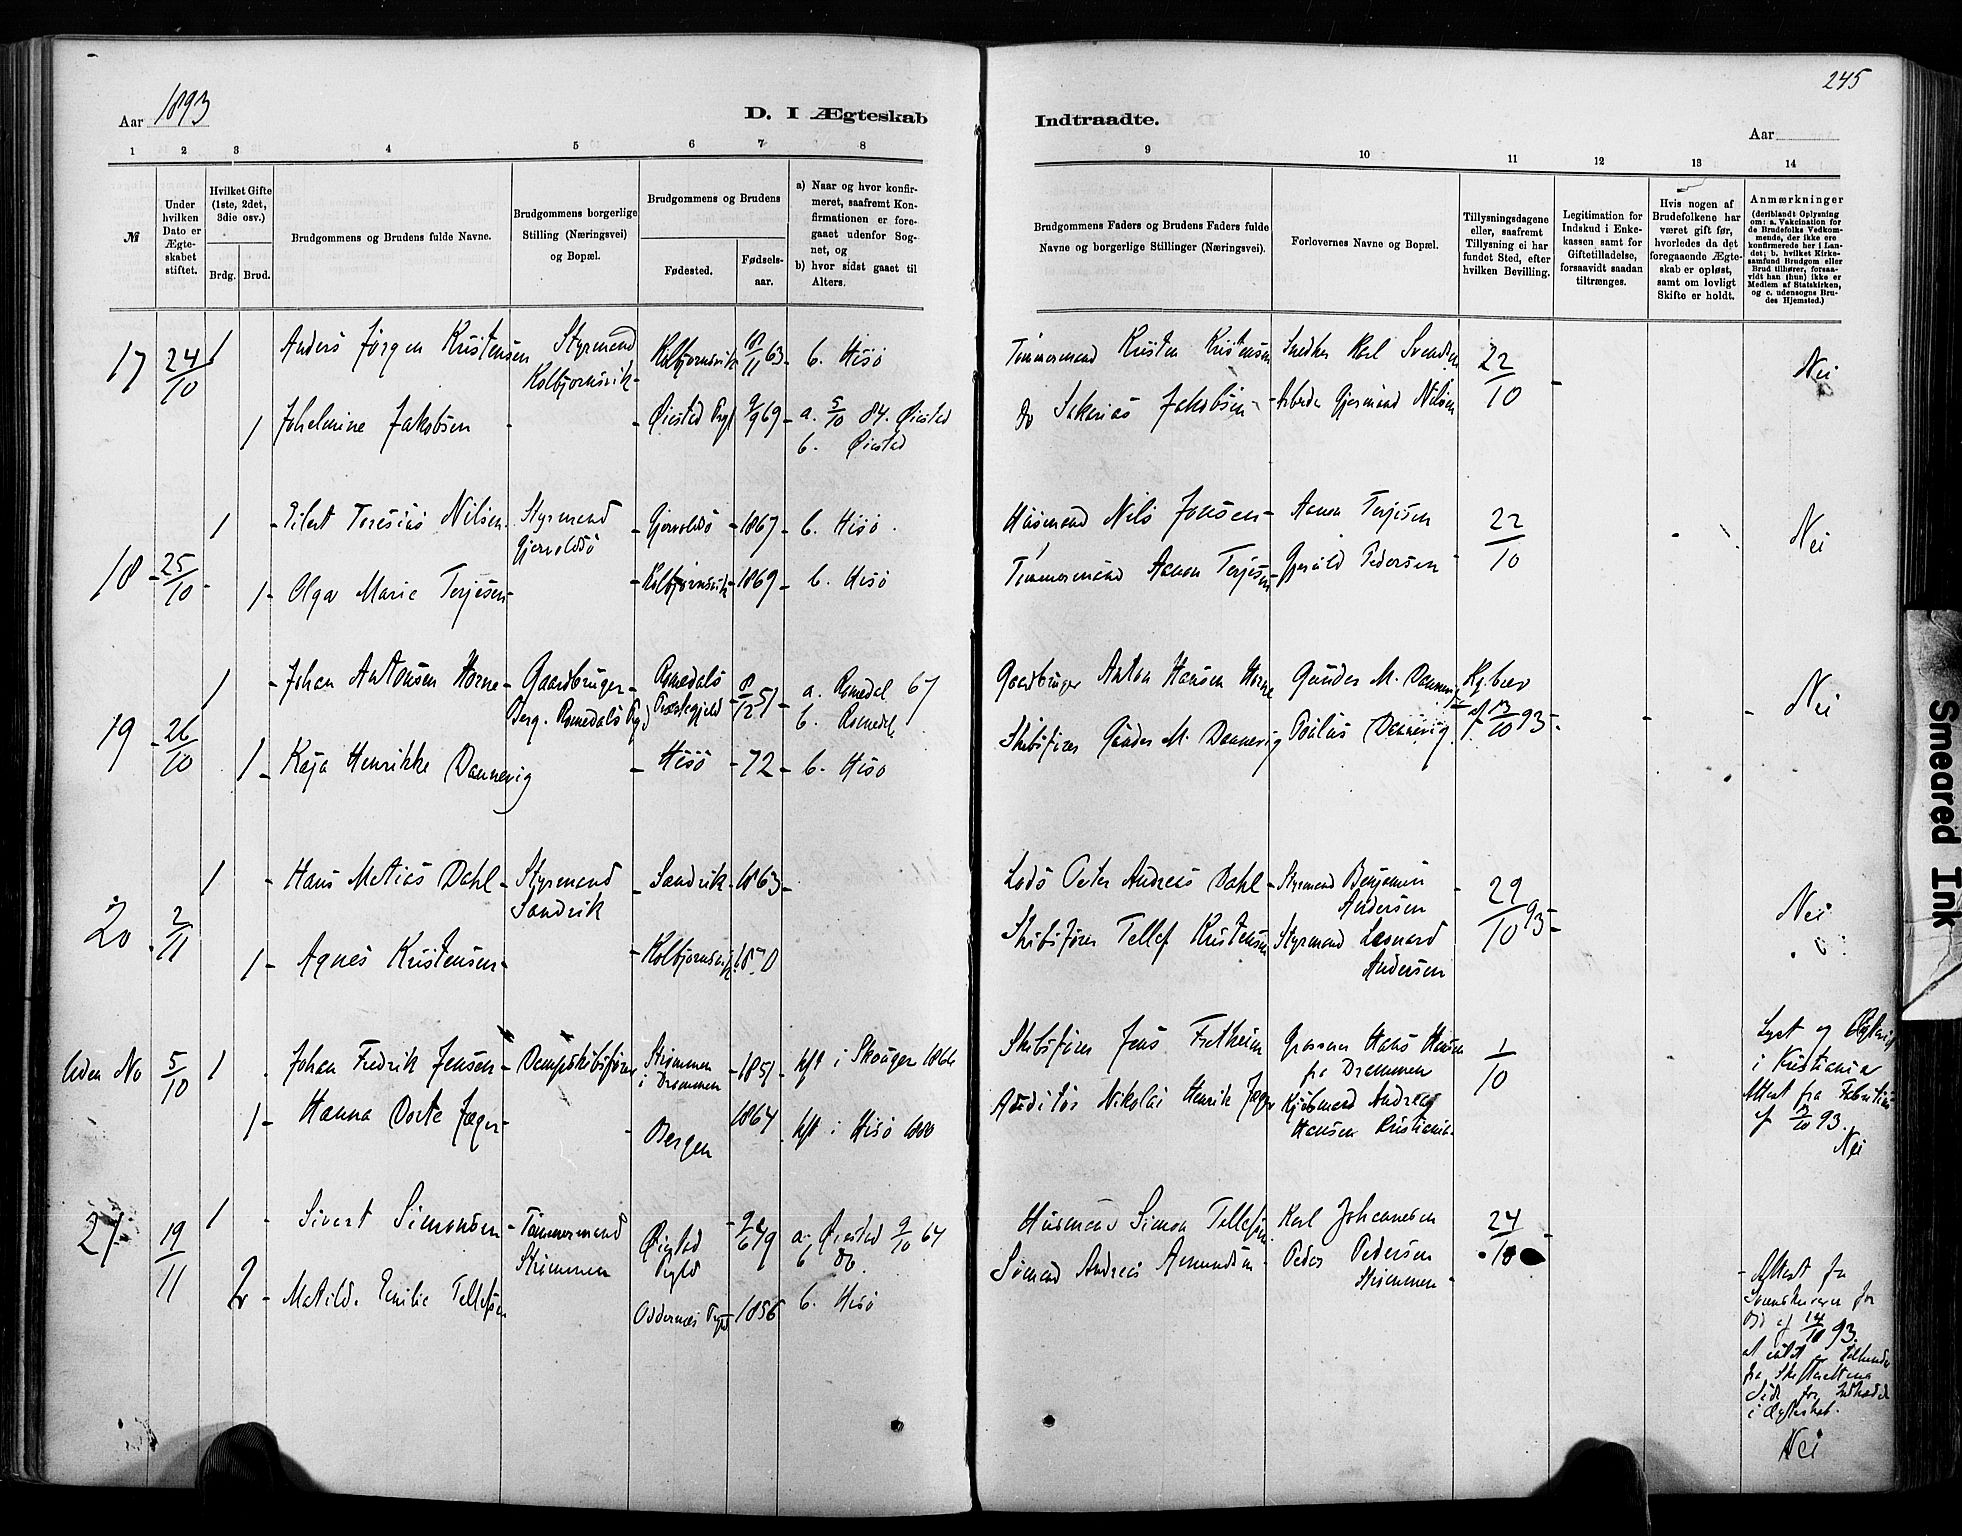 245
Aar 1893
D. I Ægteskab
Indtraadte.
Aar
1 2 3 4 5 6 7 8
9 10 11 12 13 14
№
Under hvilken Dato er Ægteskabet stiftet.
Hvilket Gifte (1ste, 2det, 3die osv.)
Brdg. Brud.
Brudgommens og Brudens fulde Navne.
Brudgommens borgerlige Stilling (Næringsvei) og Bopæl.
Brudgommens og Brudens
Fødested.
Fødselsaar.
a) Naar og hvor konfirmeret, saafremt Konfirmationen er foregaaet udenfor Sognet, og
b) hvor sidst gaaet til Alters.
Brudgommens Faders og Brudens Faders fulde Navne og borgerlige Stillinger (Næringsvei).
Forlovernes Navne og Bopæl.
Tillysningsdagene eller, saafremt Tillysning ei har fundet Sted, efter hvilken Bevilling.
Legitimation for Indskud i Enkekassen samt for Giftetilladelse, forsaavidt saadan tiltrænges.
Hvis nogen af Brudefolkene har været gift før, hvorledes da det foregaaende Ægteskab er opløst, samt om lovligt Skifte er holdt.
Anmærkninger
(deriblandt Oplysning om: a. Vakcination for de Brudefolks Vedkommende, der ikke ere konfirmerede her i Landet; b. hvilket Kirkesamfund Brudgom eller Brud tilhører, forsaavidt han (hun) ikke er Medlem af Statskirken, og c. udensogns Brudes Hjemsted.)
17 24/10 1 Anders Jørgen Kristensen Styrmand Kolbjørnsvik Kolbjørnsvik 8/11 63 b. Hisø
Tømmermand Kristen Kristensen Snedker Karl Svendsen 22/10 Nei
1 Johelmine Jakobsen Øiestad Prgl 9/9 69 a. 5/10 84. Øiestad
b. Øiestad
Do Sakarias Jakobsen Arbeider Gjermund Nilsen
18 25/10 1 Eilert Teresius Nilsen Styrmand Gjervoldsø Gjervoldsø 1867 b. Hisø
Husmand Nils Jonsen Aanon Terjesen 22/10 Nei
1 Olga Marie Terjesen Kolbjørnsvik 1869 b. Hisø
Tømmermand Aanon Terjesen Gjeruld Pedersen
19 26/10 1 Johan Antonsen Horne Gaardbruger Berg. Romedals Pgd Romedals Præstegjeld 8/12 51 a. Romedal 67
b. Romedal
Gaardbruger Anton Hansen Horne Gunder M. Dannevig Kg.brev af 13/10 93 Nei
1 Kaja Henrikke Dannevig Hisø 72 b. Hisø
Skibsfører Gunder M. Dannevig Paulus Dannevig
20 2/11 1 Hans Matias Dahl Styrmand Sandvik Sandvik 1863
Lods Peter Andreas Dahl Styrmand Benjamin Andersen 29/10 93 Nei
1 Agnes Kristensen Kolbjørnsvik 1870
Skibsfører Tellef Kristensen Styrmand Leonard Andersen
Uden No 5/10 1 Johan Fredrik Jensen Dampskibsfører Strømmen i Drammen 1851 kft i Skouger 1866
Skibsfører Jens Hans Hansen fra Drammen 1/10
1 Hanna Dorte Jæger Bergen 1864 kft i Hisø
Auditør Nikolai Henrik Jæger Kjøbmand Andreas Hansen Kristiania
Lyst og
i Kristiania
Attest fra
af 93.
Nei
21 19/11 1 Sivert Simonsen Tømmermand Strømmen Øiestad Pgld 9/6 49 a. Øiestad 9/10 64
b do.
Husmand Simon Tellefsen Karl Johannesen 24/10
2 Matilde Emilie Tellefsen Oddernes Pgld 1856 b. Hisø
Sømand Andreas Amundsen Peder Pedersen Strømmen
Attest fra
af 14/10 93
fra Skifterettens
Side for
i Ægteskab.
Nei
Smeared Ink